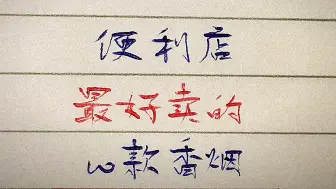 便利店
最好卖的
10款香烟